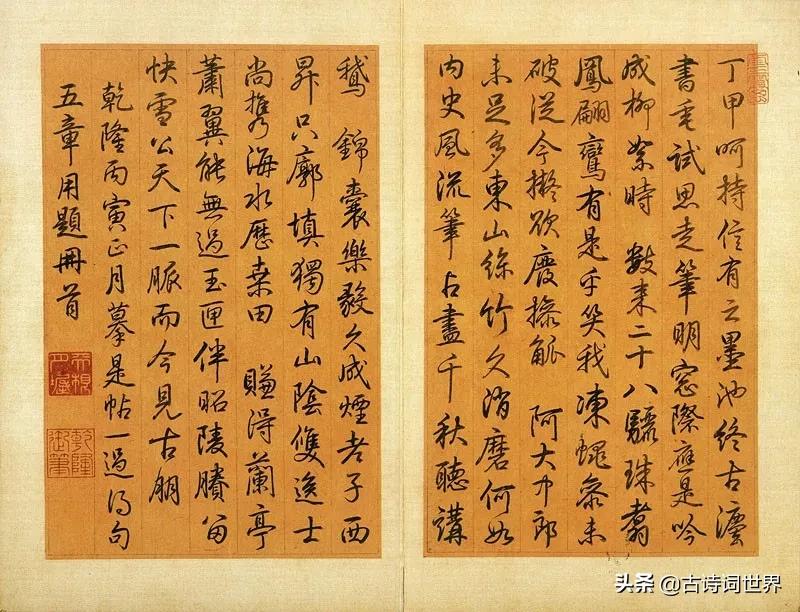 丁甲呵持信有之墨池終古灋
書垂試思走筆明窓際應是吟
成柳絮時 數来二十八驪珠翥
鳳翩鸞有是乎笑我凍蠅叅未
破從今擬欲廢操觚 阿大中郎
未足多東山絲竹久消磨何如
内史風流筆占盡千秋聽講
鵝 錦囊樂毅久成煙老子西
昇只廓填獨有山陰雙逸士
尚攜海水歷桑田 賺得蘭亭
蕭翼能無過玉匣伴昭陵賸留
快雪公天下一脈而今見古朋
乾隆丙寅正月摹是帖一過得句
五章用題冊首
乾隆御筆
头条 @古诗词世界